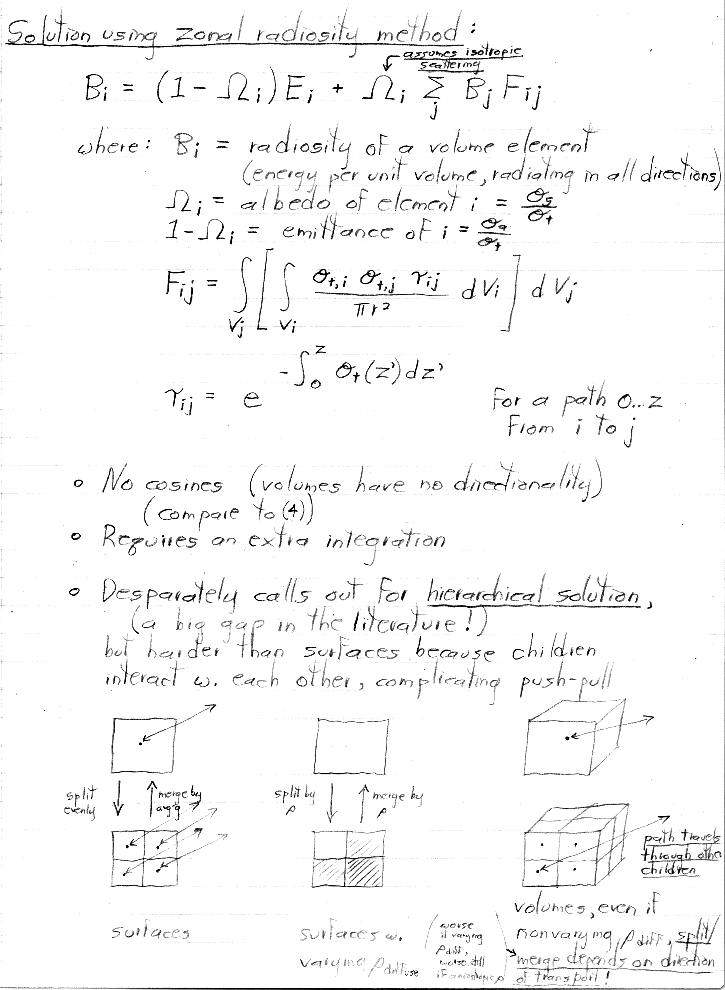 Solution using zonal radiosity method:
assumes isotropic
scattering
Bi = (1 - Ωi) Ei + Ωi Σj Bj Fij
where: Bi = radiosity of a volume element
(energy per unit volume, radiating in all directions)
Ωi = albedo of element i = σs/σt
1-Ωi = emittance of i = σa/σt
Fij = ∫Vj [ ∫Vi σt,i σt,j τij / πr² dVi ] dVj
τij = e^(-∫₀ᶻ σt(z')dz')
for a path 0...z
from i to j
o No cosines (volumes have no directionality)
(compare to (4))
o Requires an extra integration
o Desparately calls out for hierarchical solution,
(a big gap in the literature!)
but harder than surfaces because children
interact w. each other, complicating push-pull
split evenly
merge by avg'g
split by ρ
merge by ρ
path travels
through other
children
surfaces
surfaces w.
varying ρdiffuse
(worse
if varying
ρdiff,
worse still
if anisotropic ρ)
volumes, even if
nonvarying ρdiff, split/
merge depends on direction
of transport!